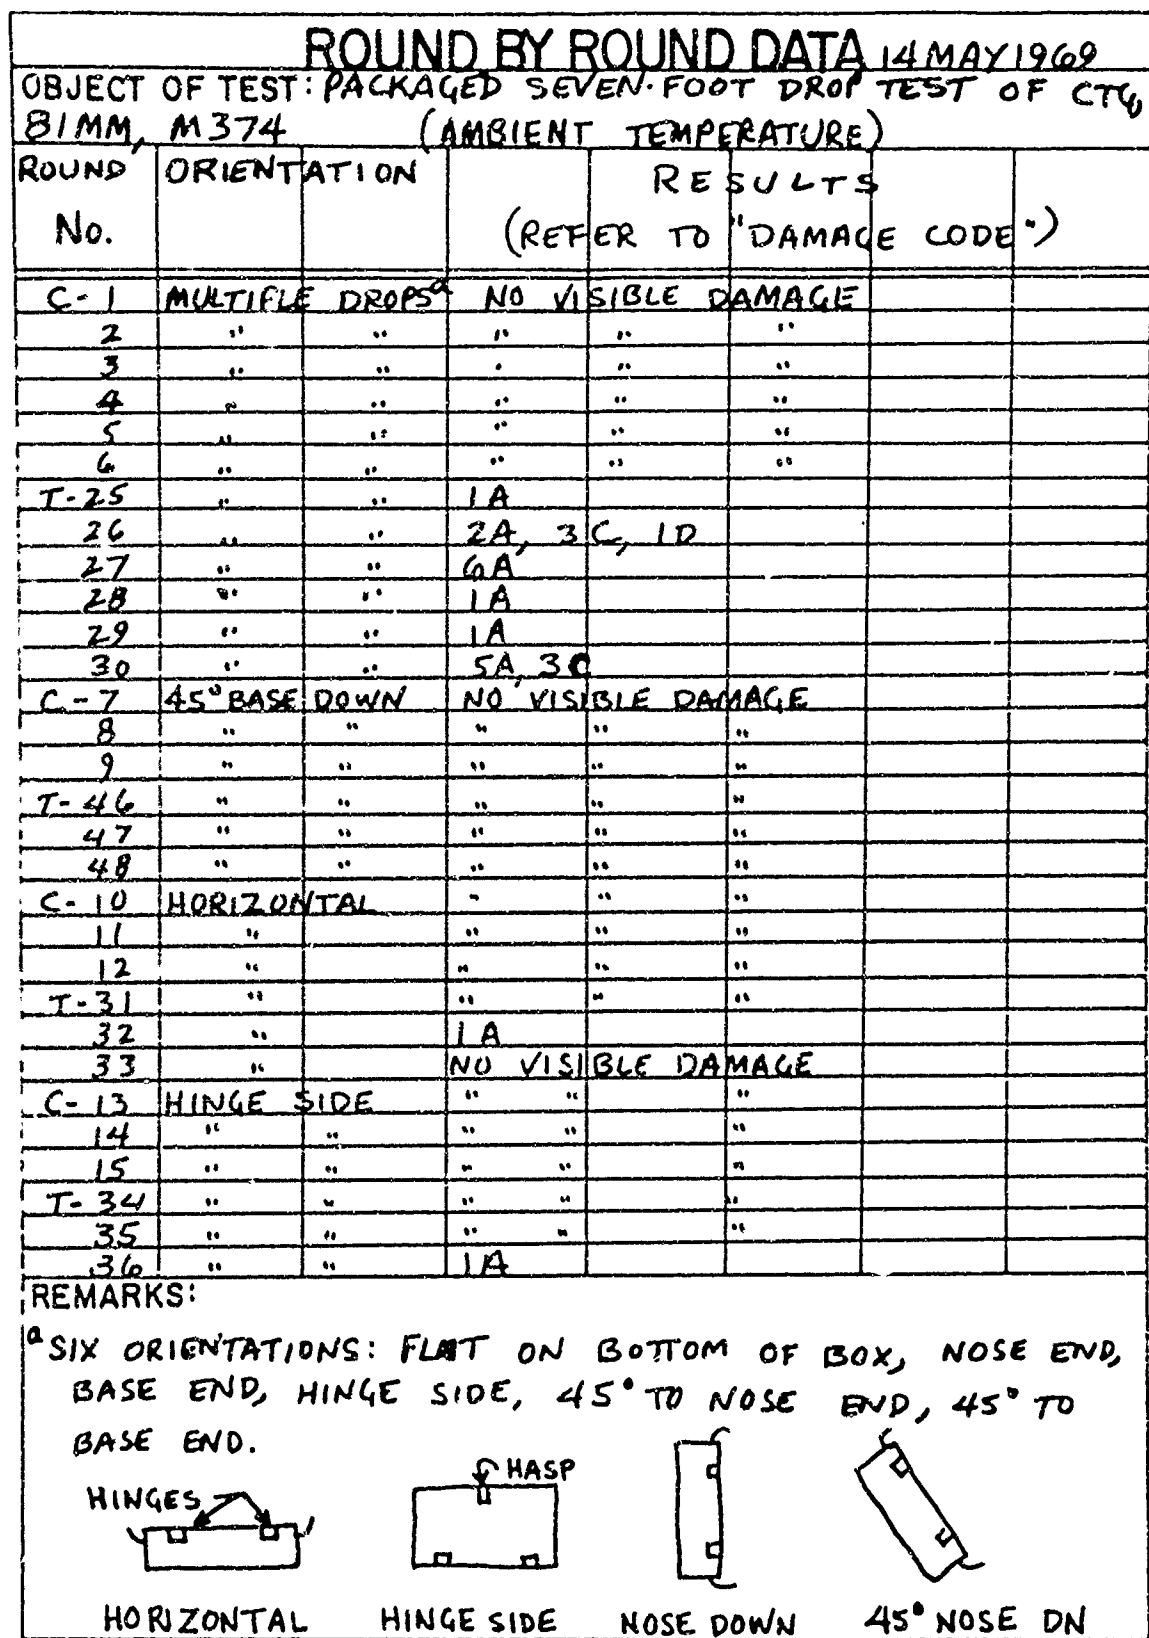 ROUND BY ROUND DATA 14 MAY 1969
OBJECT OF TEST: PACKAGED SEVEN-FOOT DROP TEST OF CTG,
81MM, M374 (AMBIENT TEMPERATURE)
ROUND ORIENTATION RESULTS
No. (REFER TO "DAMAGE CODE")
C-1 MULTIPLE DROPSᵃ NO VISIBLE DAMAGE
2 " " " " "
3 " " " " "
4 " " " " "
5 " " " " "
6 " " " " "
T-25 " " 1A
26 " " 2A, 3C, 1D
27 " " 6A
28 " " 1A
29 " " 1A
30 " " 5A, 3C
C-7 45° BASE DOWN NO VISIBLE DAMAGE
8 " " " " "
9 " " " " "
T-46 " " " " "
47 " " " " "
48 " " " " "
C-10 HORIZONTAL " " "
11 " " " "
12 " " " "
T-31 " " " "
32 " 1A
33 " NO VISIBLE DAMAGE
C-13 HINGE SIDE " " "
14 " " " " "
15 " " " " "
T-34 " " " " "
35 " " " " "
36 " " 1A
REMARKS:
ᵃ SIX ORIENTATIONS: FLAT ON BOTTOM OF BOX, NOSE END,
BASE END, HINGE SIDE, 45° TO NOSE END, 45° TO
BASE END.
HASP
HINGES
HORIZONTAL HINGE SIDE NOSE DOWN 45° NOSE DN